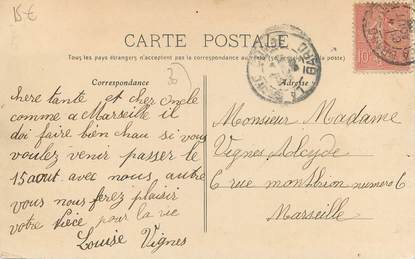 15 €
CARTE POSTALE
Tous les pays étrangers n'acceptent pas la correspondance au la poste)
Correspondance
Adresse
30
chere tante et cher Oncle
comme a Marseille il
doi faire bien chau si vous
voulez venir passer le
15 aout avec nous autre
vous nous ferez plaisir
votre nièce pour la vie
Louise Vignes
Monsieur Madame
Vignes Alcyde
6 rue montbrion numero 6
Marseille
10